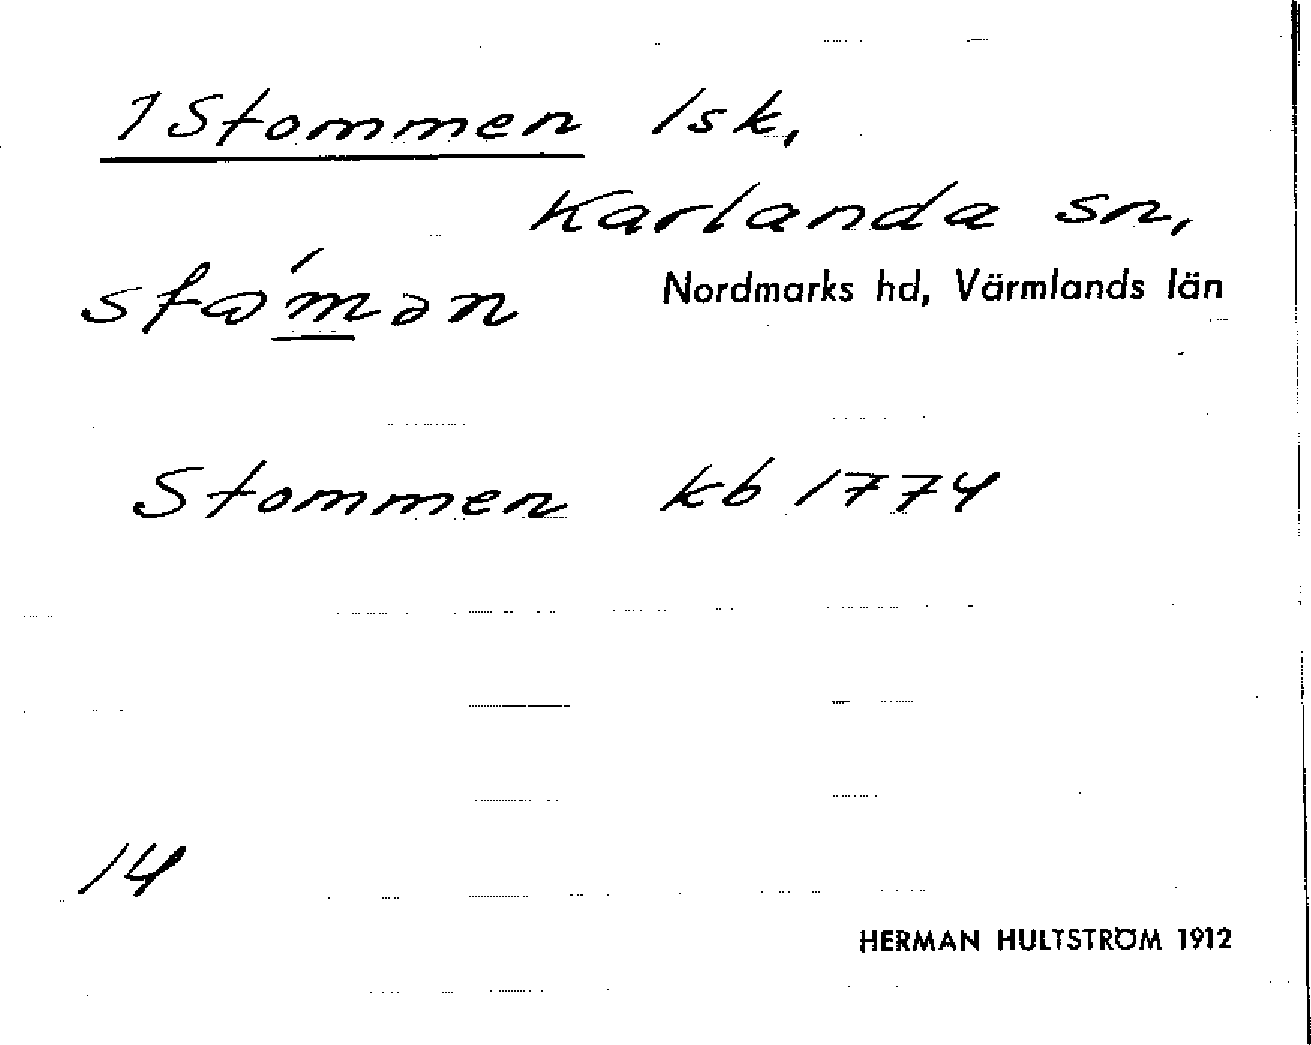 1 Stommen 1 sk,
Karlanda sn,
stω´mən
Nordmarks hd, Värmlands län
Stommen kb 1774
14
HERMAN HULTSTRÖM 1912